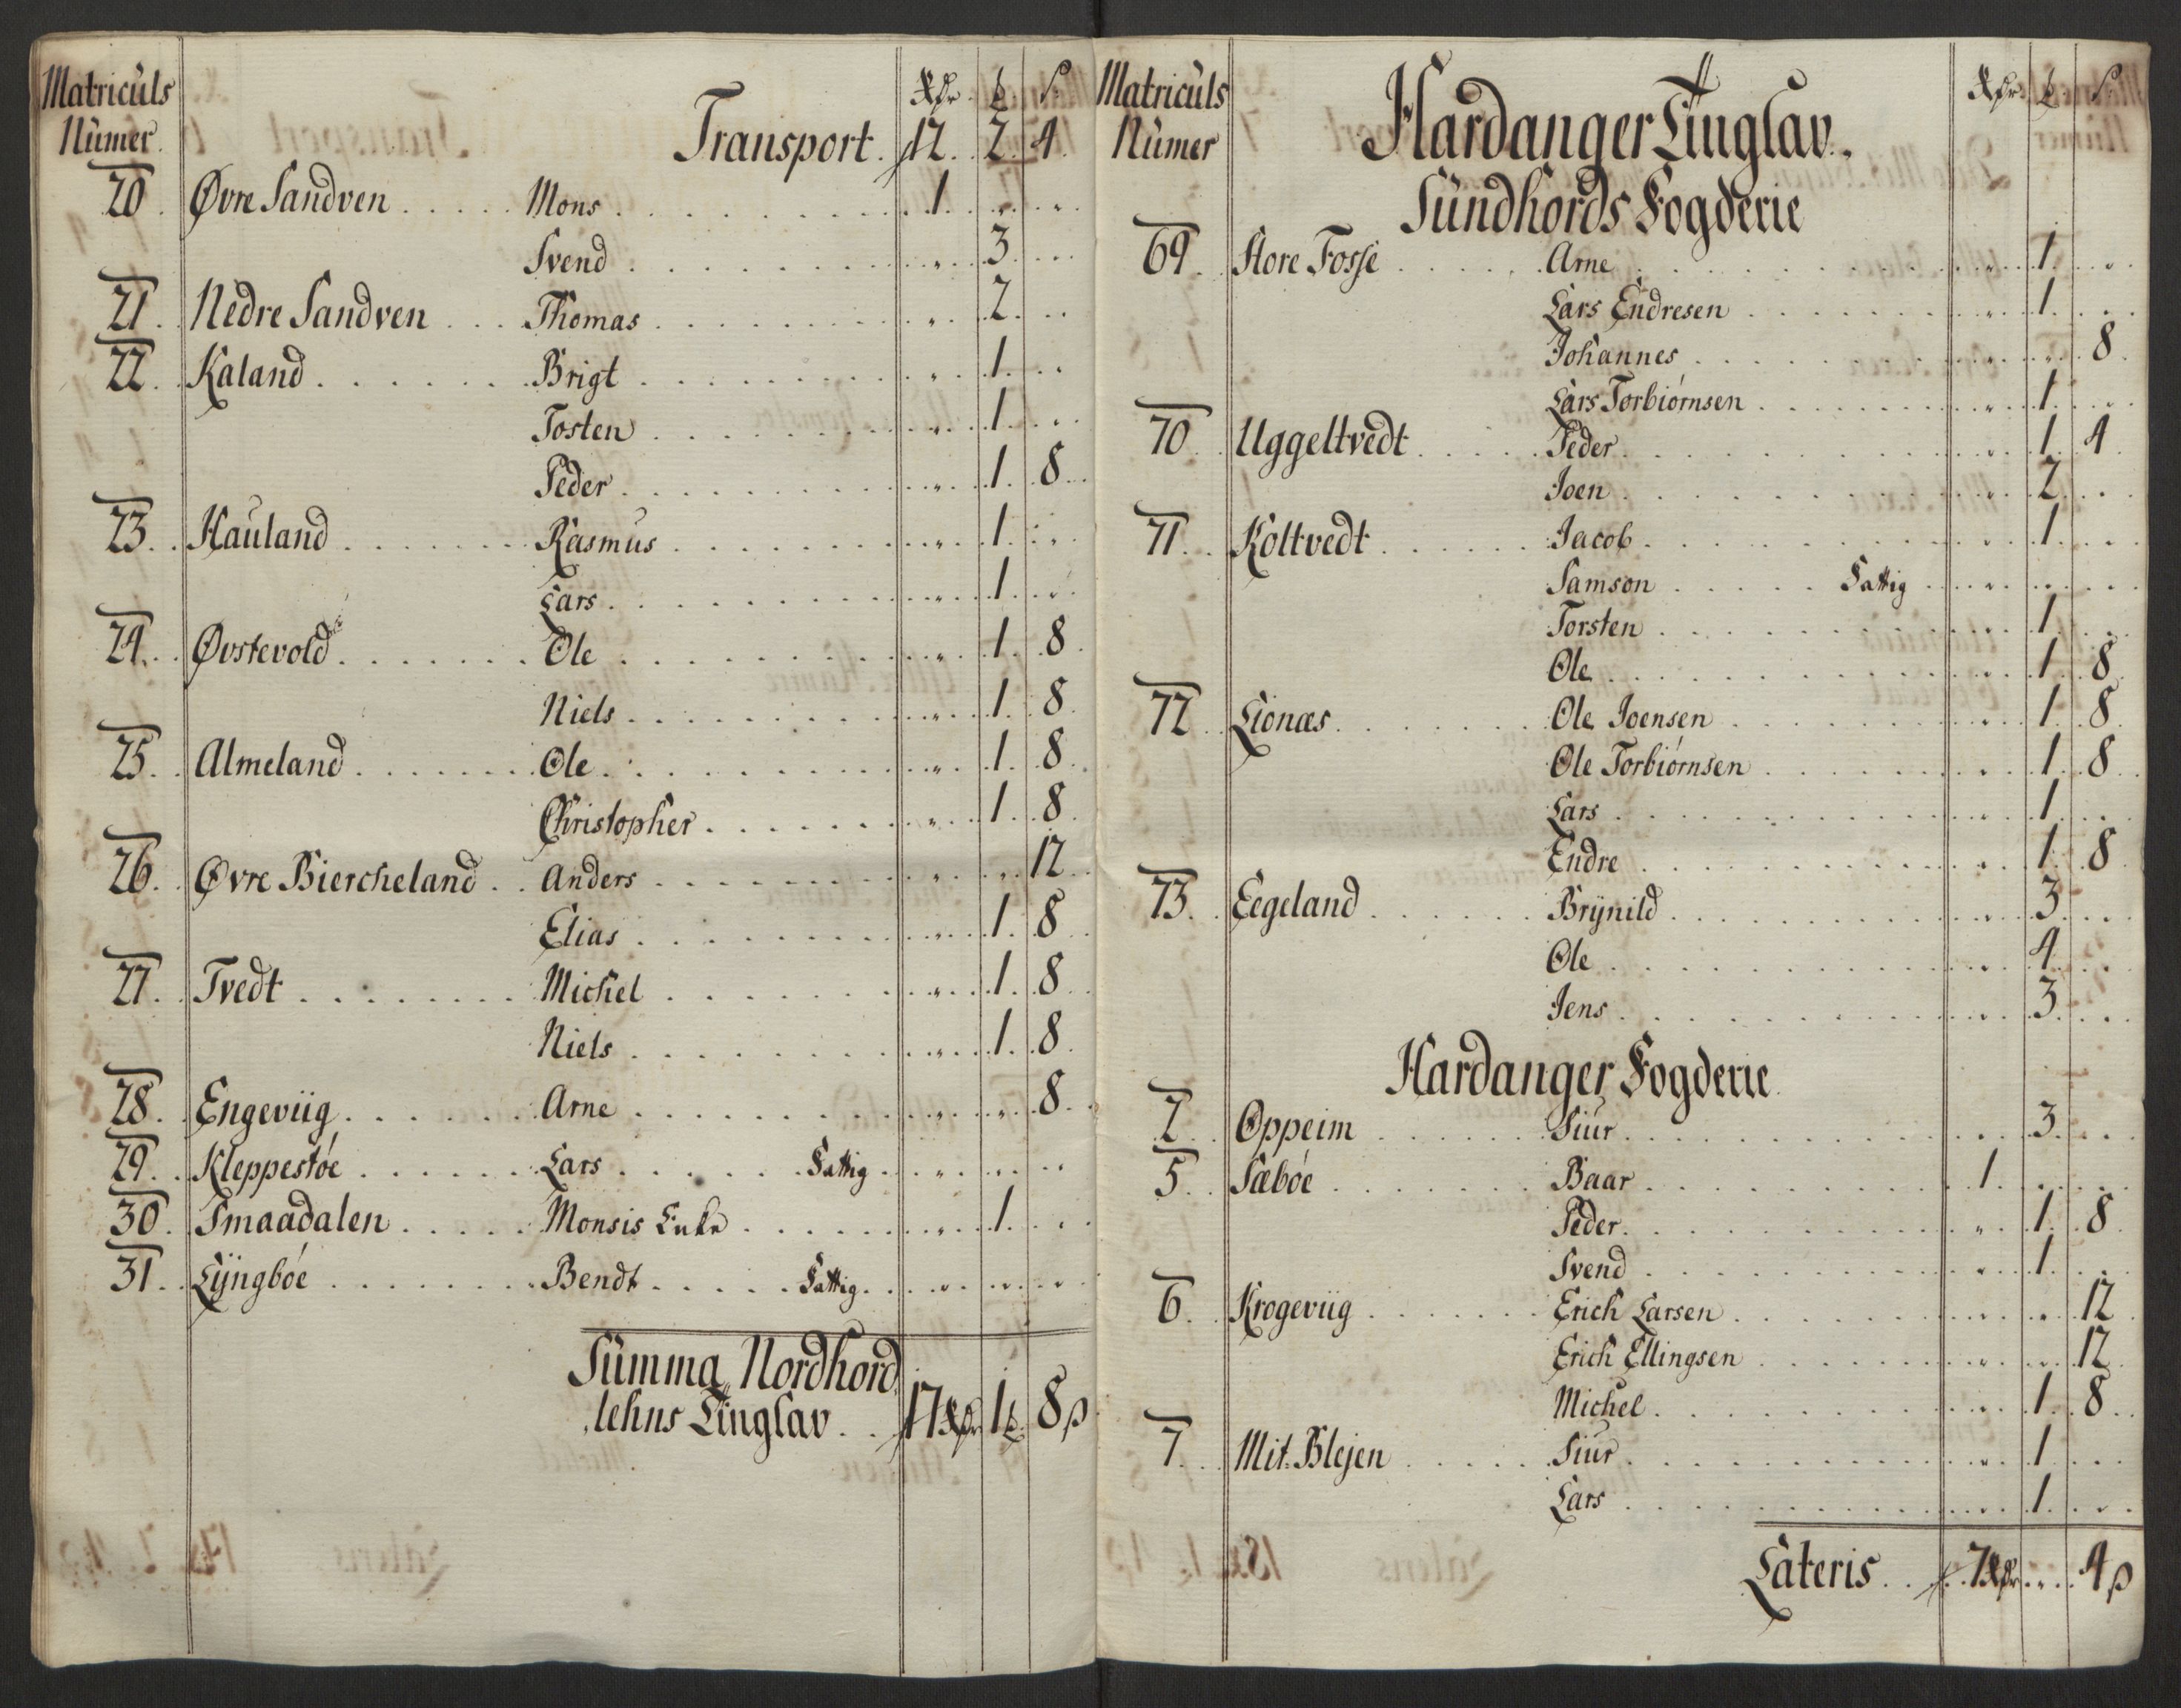 Matriculs Rdr. ₰. s.
Numer. Transport. 12. 2. 4.
20. Øvre Sandven Mons 1.
Svend 3.
21. Nedre Sandven Thomas 2.
22. Kaland Brigt 1.
Tosten 1.
Peder 1. 8.
23. Hauland Rasmus 1.
Lars 1.
24. Øvstevold Ole 1. 8.
Niels 1. 8.
25. Almeland Ole 1. 8.
Christopher 1. 8.
26. Øvre Biercheland Anders 12.
Elias 1. 8.
27. Tvedt Michel 1. 8.
Niels 1. 8.
28. Engeviig Arne 8.
29. Kleppestøe Lars Fattig
30. Smaadalen Monsis Enke 1.
31. Lÿngbøe Bendt Fattig
Summa Nordhord
lehns Tinglav 17 Rdr 1 8 s
Matriculs Hardanger Tinglav. Rdr. s.
Numer
Sundhords Fogderie
69. Store Fosse Arne 1.
Lars Endresen 1.
Johannes 8.
Lars Torbiørnsen 1.
70. Uggeltvedt Peder 1. 4.
Joen 2.
71. Koltvedt Jacob 1.
Samson Fattig
Torsten 1.
Ole 1. 8.
72. Lionæs Ole Joensen 1. 8.
Ole Torbiørnsen 1. 8.
Lars 1.
Endre 1. 8.
73. Eegeland Brÿnild 3.
Ole 4.
Jens 3.
Hardanger Fogderie
2. Oppeim Siur 3.
5. Sæbøe Baar 1.
Peder 1. 8.
Svend 1.
6. Krogeviig Erich Larsen 12.
Erich Ellingsen 12.
Michel 1. 8.
7. Mit. Blejen Siur 1.
Lars 1.
Lateris 7 Rdr 4 s